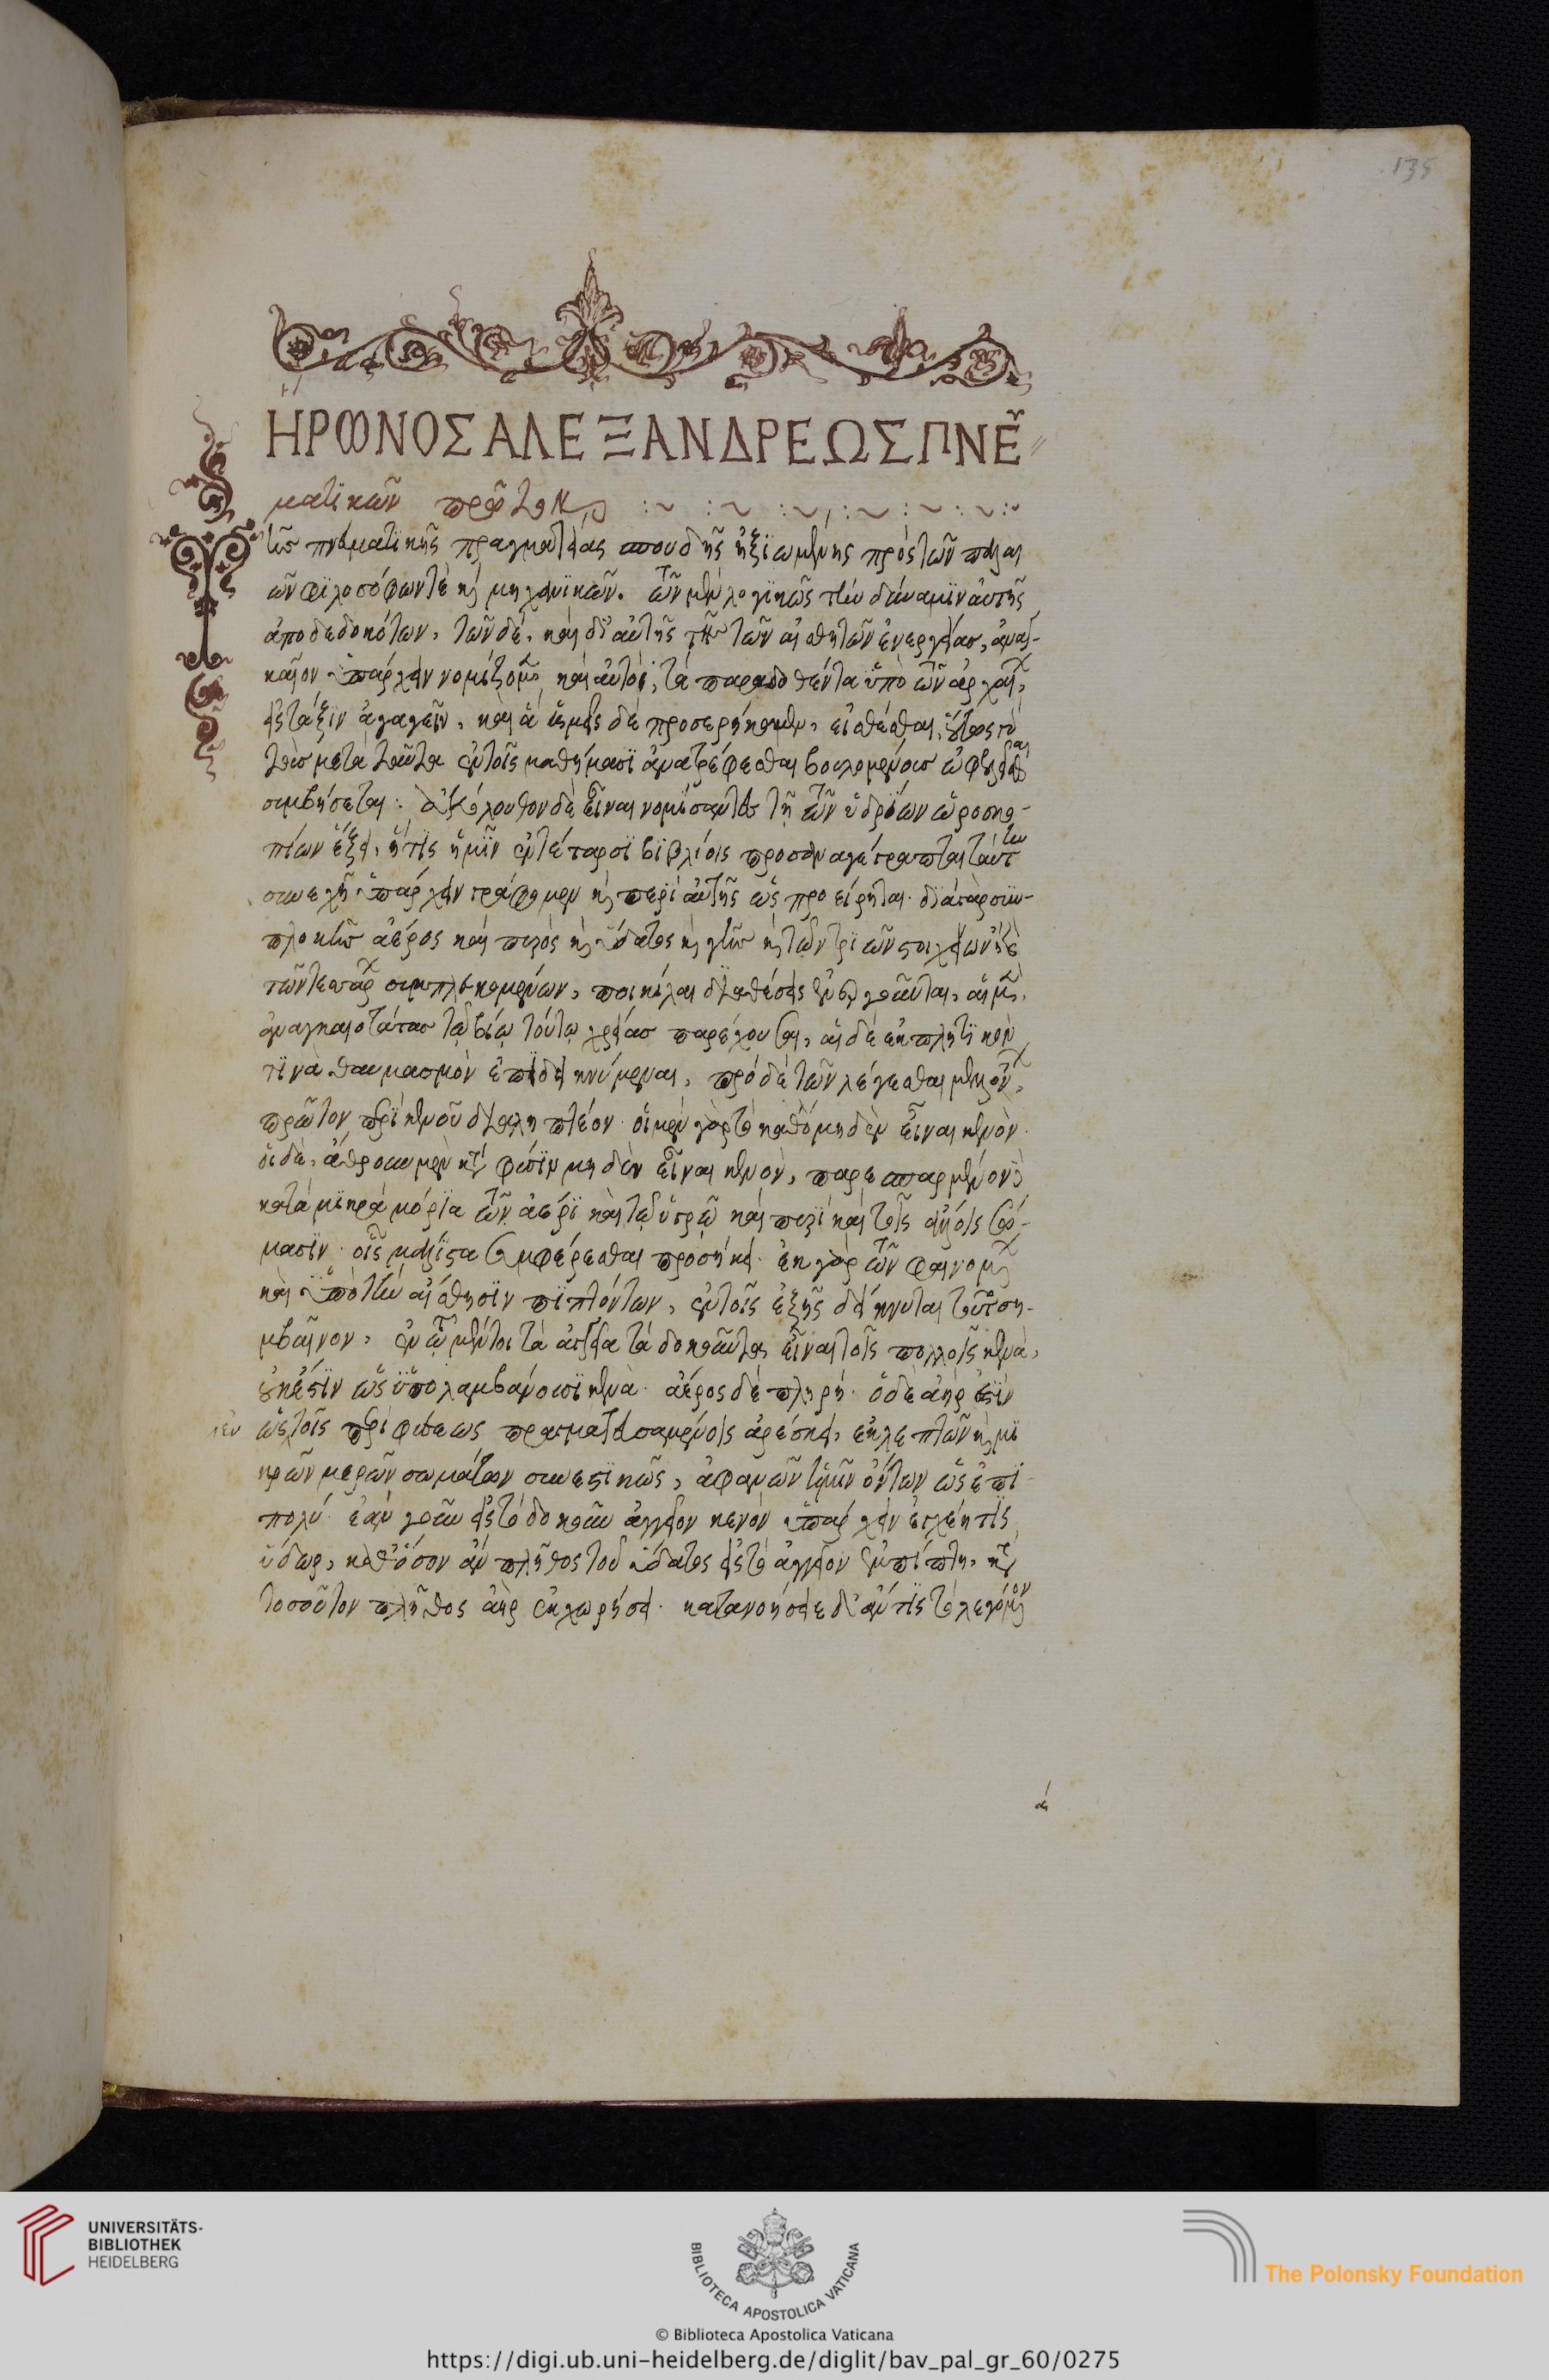 135
ΗΡΩΝΟΣ ΑΛΕΞΑΝΔΡΕΩΣ ΠΝΕῩ
ματικῶν πρῶτον
τῆς πνευματικῆς πραγματείας σπουδῆς ἠξιωμένης πρὸς τῶν παλαι
ῶν φιλοσόφων τὲ καὶ μηχανικῶν. τῶν μὲν λογικῶς τὴν δύναμιν αὐτῆς
ἀποδεδοκότων, τῶν δὲ, καὶ δι' αὐτῆς τῆς τῶν αἰσθητῶν ἐνεργείας, ἀναγ-
καῖον ὑπάρχειν νομίζομεν καὶ αὐτοὶ, τὰ παραδοθέντα ὑπὸ τῶν ἀρχαίων,
εἰς τάξιν ἀγαγεῖν, καὶ ἃ ἡμεῖς δὲ προσευρήκαμεν, εἰσθέσθαι, οὕτως γὰρ
τοὺς μετὰ ταῦτα ἐν τοῖς μαθήμασι ἀναστρέφεσθαι βουλομένοις ὠφελεῖσθαι
συμβήσεται. ἀκόλουθον δὲ εἶναι νομίσαντες τῇ τῶν ὑδρίων ὡροσκο-
πίων ἕξει, ἥτις ἡμῖν ἐν τέταρσι βιβλίοις προσαναγέγραπται ταύτην
συνεχῆ ὑπάρχειν γράφομεν καὶ περὶ αὐτῆς ὡς προείρηται. διὰ γὰρ συμ-
πλοκῆς ἀέρος καὶ πυρὸς καὶ ὕδατος καὶ γῆς καὶ τῶν τριῶν στοιχείων ἢ καὶ
τῶν τεσσάρων συμπλεκομένων, ποικίλαι διαθέσεις ἐνεργοῦνται, αἱ μὲν,
ἀναγκαιοτάτας τῷ βίῳ τούτῳ χρείας παρέχουσαι, αἱ δὲ ἐκπληκτικόν
τινὰ θαυμασμὸν ἐπιδεικνύμεναι, πρὸ δὲ τῶν λέγεσθαι μελλόντων,
πρῶτον περὶ κενοῦ διαληπτέον. οἱ μὲν γὰρ τὸ καθόλου μηδὲν εἶναι κενὸν.
οἱ δὲ, ἄθρουν μὲν κατὰ φύσιν μηδὲν εἶναι κενὸν, παρεσπαρμένον δὲ
κατὰ μικρὰ μόρια τῶν ἀέρι καὶ τῷ ὑγρῷ καὶ πυρὶ καὶ τοῖς ἄλλοις σώ-
μασιν. οἷς μάλιστα συμφέρεσθαι προσήκει. ἐκ γὰρ τῶν φαινομένων
καὶ ὑπὸ τὴν αἴσθησιν πιπτόντων, ἐν τοῖς ἑξῆς δείκνυται τοῦτο συ-
μβαῖνον, ἐν ᾧ μέντοι τὰ ἀγγεῖα τὰ δοκοῦντα εἶναι τοῖς πολλοῖς κενὰ,
οὐκ ἔστιν ὡς ὑπολαμβάνουσι κενὰ. ἀέρος δὲ πλήρη. ὁ δὲ ἀὴρ ἐστὶν
ὡς τοῖς περὶ φύσεως πραγματευσαμένοις ἀρέσκει, ἐκ λεπτῶν καὶ μι
κρῶν μερῶν σωμάτων συνεστικῶς, ἀφανῶν ἡμῖν ὄντων ὡς ἐπὶ
πολύ. ἐὰν γοῦν εἰς τὸ δοκοῦν ἀγγεῖον κενὸν ὑπάρχειν ἐγχέῃ τίς
ὕδωρ, καθόσον ἂν πλῆθος τοῦ ὕδατος εἰς τὸ ἀγγεῖον ἐμπίπτῃ, κατὰ
τοσοῦτον πλῆθος ἀὴρ ἐκχωρήσει. κατανοήσειε δ' ἄν τις τὸ λεγόμενον
UNIVERSITÄTS-
BIBLIOTHEK
HEIDELBERG
BIBLIOTECA APOSTOLICA VATICANA
The Polonsky Foundation
© Biblioteca Apostolica Vaticana
https://digi.ub.uni-heidelberg.de/diglit/bav_pal_gr_60/0275